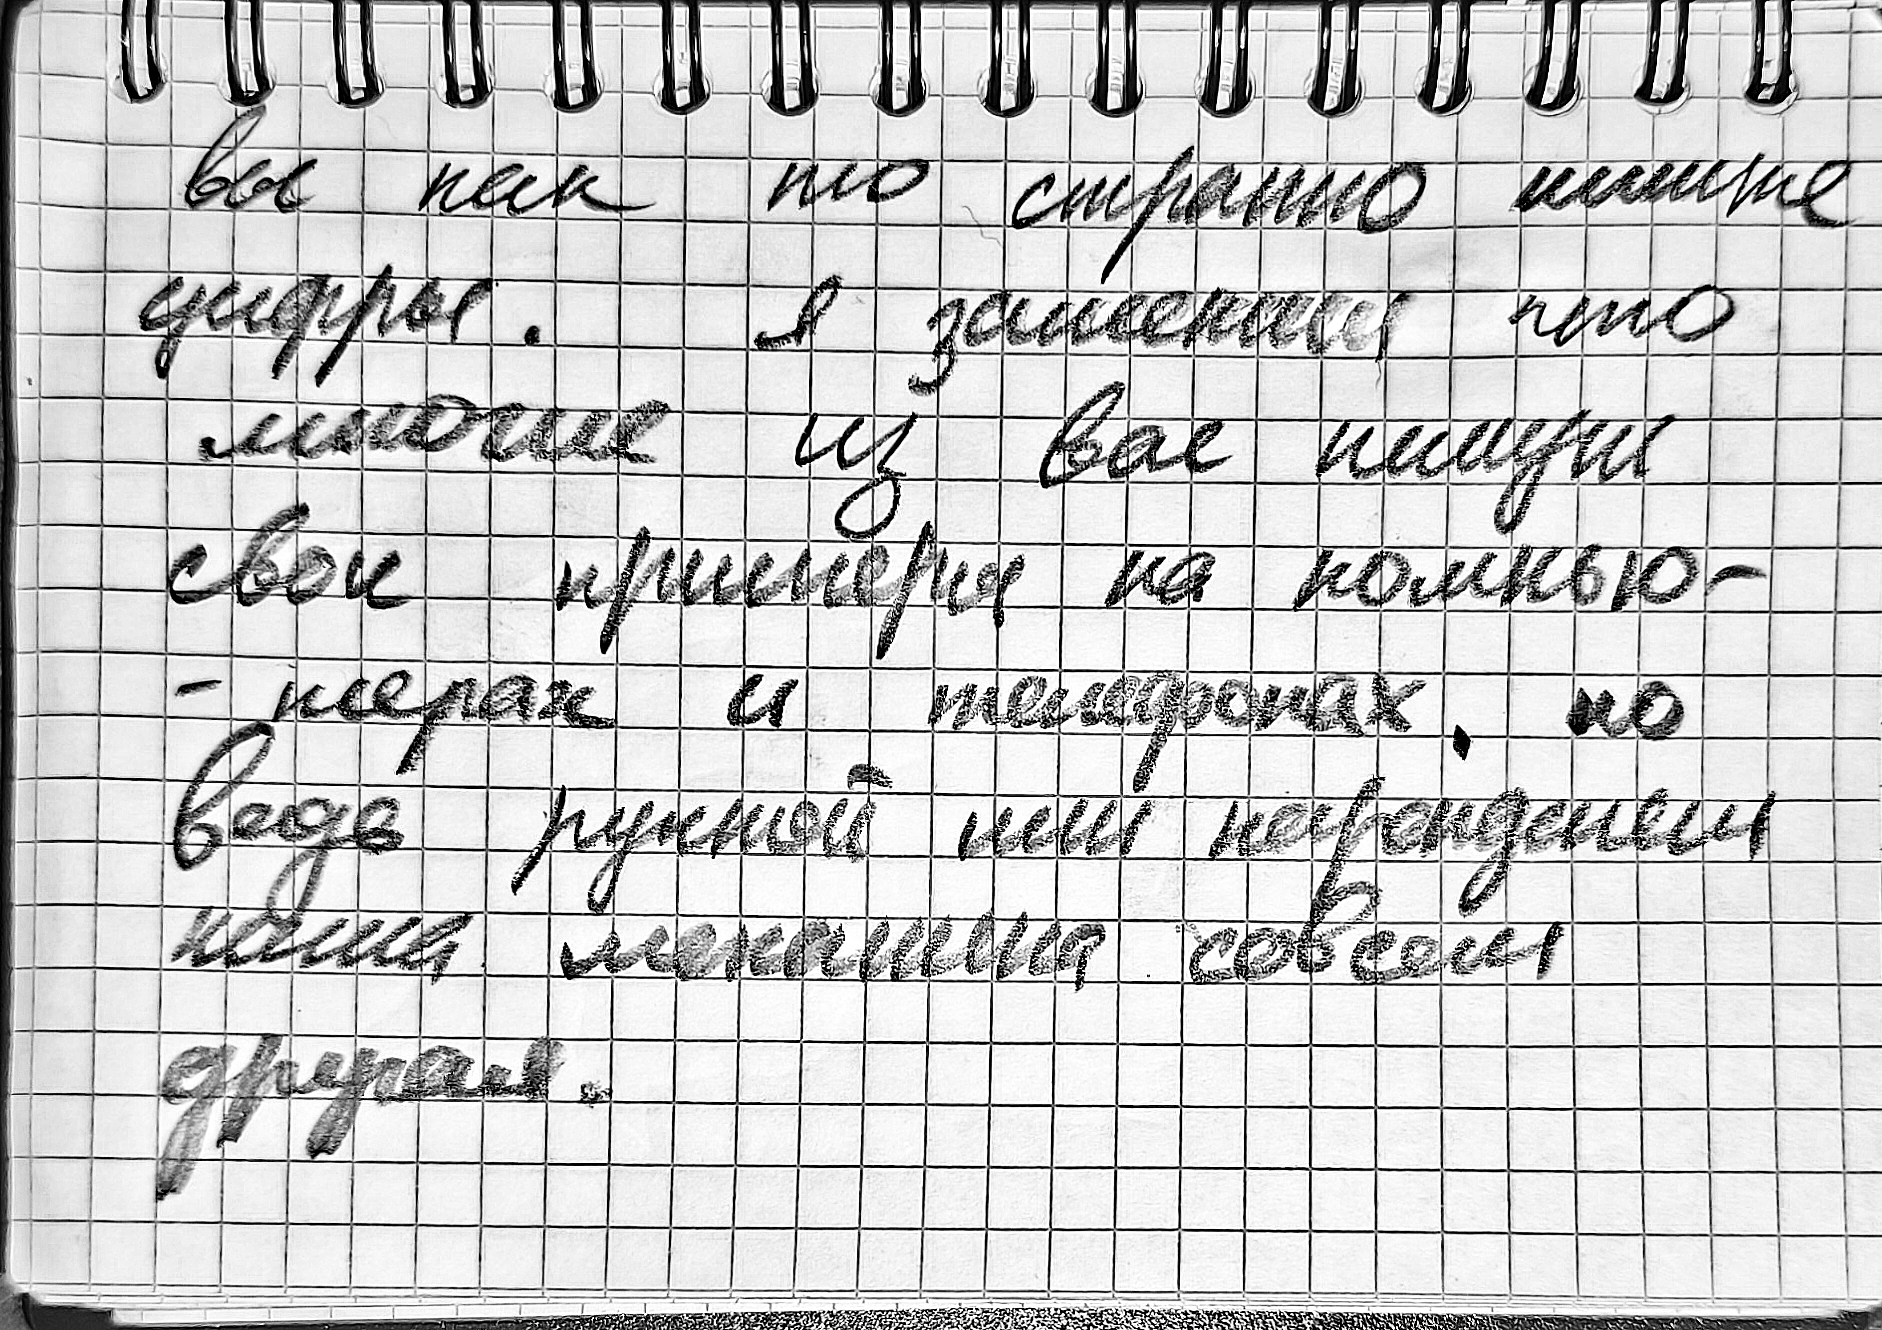 вы как то странно пишите
цифры. я заметил что
многие из вас пишут
свои примеры на компью-
-терах и телефонах. но
ведь ручкой или карандашом
наша механика совсем
другая.